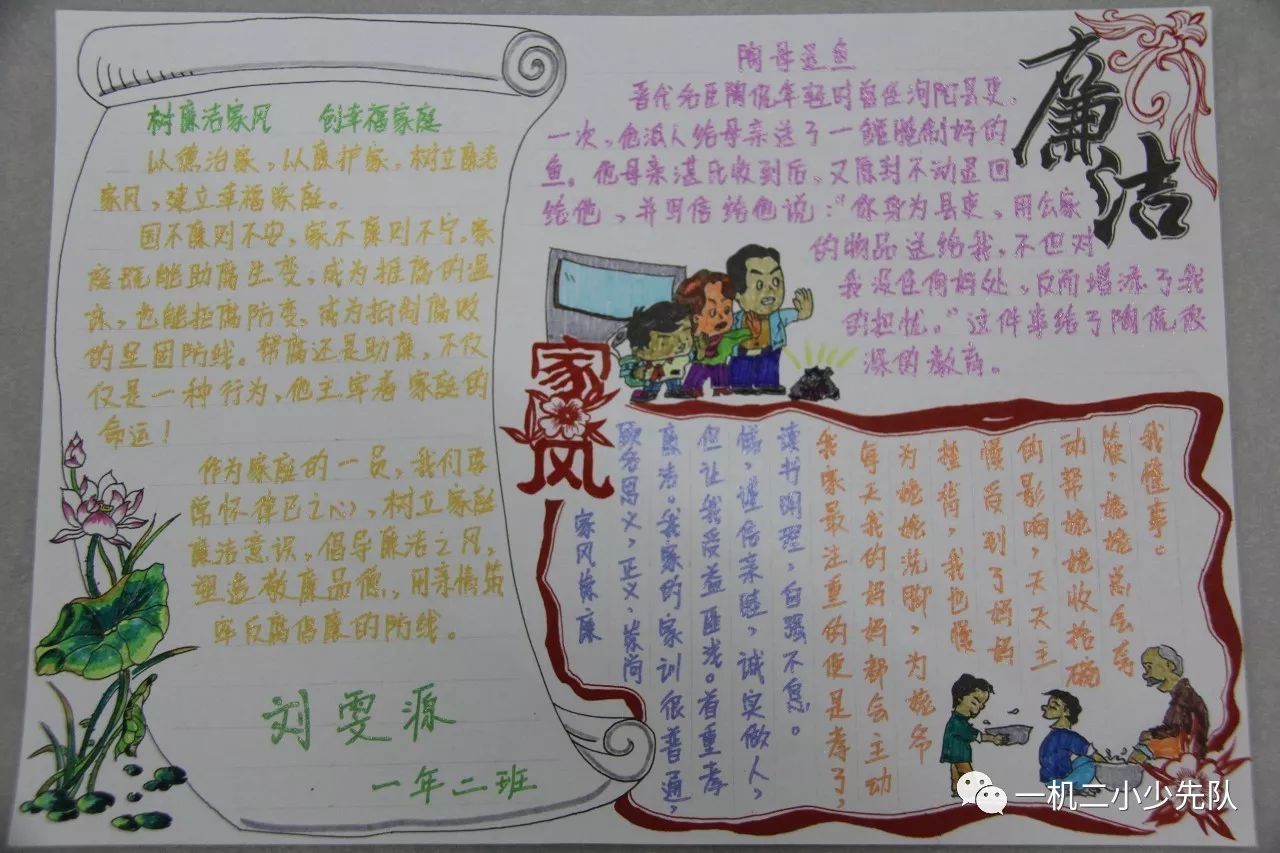 树廉洁家风 创幸福家庭
以德治家,以廉护家,树立廉洁
家风,建立幸福家庭。
国不廉则不安,家不廉则不宁,家
庭既能助腐生变,成为推腐的温
床,也能拒腐防变,成为抵制腐败
的坚固防线。帮腐还是助廉,不仅
仅是一种行为,他主宰着家庭的
命运!
作为家庭的一员,我们要
常怀律己之心,树立家庭
廉洁意识,倡导廉洁之风,
塑造敬廉品德,用亲情筑
牢反腐倡廉的防线。
刘雯源
一年二班
陶母退鱼
晋代名臣陶侃年轻时曾任浔阳县吏。
一次,他派人给母亲送了一罐腌制好的
鱼。他母亲湛氏收到后,又原封不动退回
给他,并写信给他说:"你身为县吏,用公家
的物品送给我,不但对
我没任何好处,反而增添了我
的担忧。"这件事给了陶侃很
深的教育。
廉洁
家风
家风家廉
顾名思义,正义、崇尚
廉洁。我家的家训很普通,
但让我受益匪浅。首重孝
悌,谨信亲睦,诚实做人,
读书明理,自强不息。
我家最注重的便是孝了,
每天我的妈妈都会主动
为姥姥洗脚,为姥爷
捶背,我也慢
慢受到了妈妈
的影响,天天主
动帮姥姥收拾碗
筷,姥姥总会夸
我懂事。
一机二小少先队